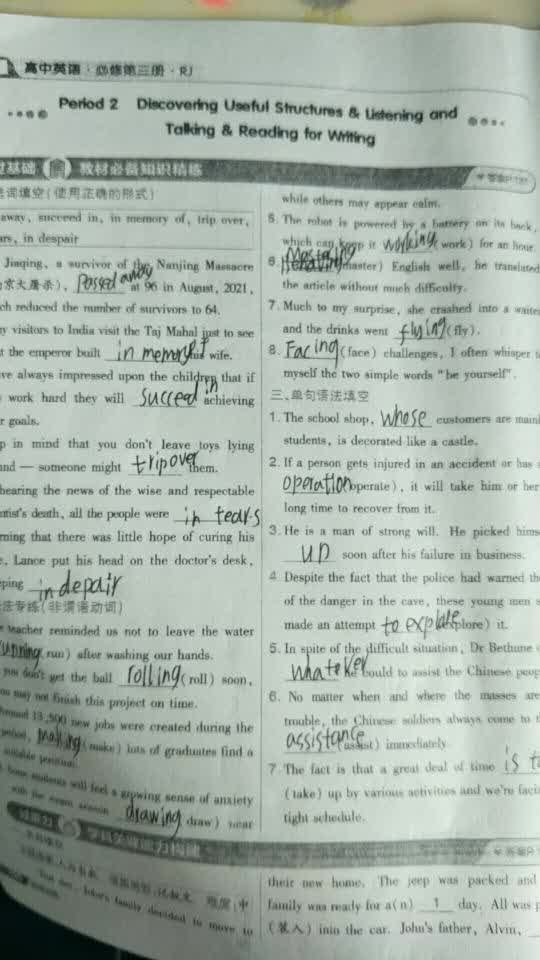 高中英语·必修第三册·RJ
Period 2 Discovering Useful Structures & Listening and
Talking & Reading for Writing
过基础 教材必备知识精练
词填空(使用正确的形式)
away, succeed in, in memory of, trip over,
in despair
Jiaqing, a survivor of the Nanjing Massacre
京大屠杀), passed away at 96 in August, 2021,
ch reduced the number of survivors to 64.
visitors to India visit the Taj Mahal just to see
the emperor built in memory his wife.
ve always impressed upon the children that if
work hard they will succeed in achieving
goals.
p in mind that you don't leave toys lying
nd — someone might trip over them.
hearing the news of the wise and respectable
ntist's death, all the people were in tears
ming that there was little hope of curing his
Lance put his head on the doctor's desk,
ping in depair
法专练(非谓语动词)
teacher reminded us not to leave the water
running (run) after washing our hands.
you don't get the ball rolling (roll) soon,
ou may not finish this project on time.
13,500 new jobs were created during the
period, making (make) lots of graduates find a
suitable position.
students will feel a growing sense of anxiety
with the exam season drawing (draw) near
学科关键能力构建
John's family decided to move to
while others may appear calm.
5. The robot is powered by a battery on its back,
which can keep it working (work) for an hour.
6. Mastering (master) English well, he translated
the article without much difficulty.
7. Much to my surprise, she crashed into a waiter
and the drinks went flying (fly).
8. Facing (face) challenges, I often whisper to
myself the two simple words "be yourself".
三、单句语法填空
1. The school shop, whose customers are mainl
students, is decorated like a castle.
2. If a person gets injured in an accident or has a
operation (operate), it will take him or her
long time to recover from it.
3. He is a man of strong will. He picked himse
up soon after his failure in business.
4. Despite the fact that the police had warned th
of the danger in the cave, these young men s
made an attempt to explore (explore) it.
5. In spite of the difficult situation, Dr Bethune
whatever he could to assist the Chinese peop
6. No matter when and where the masses are
trouble, the Chinese soldiers always come to t
assistance (assist) immediately.
7. The fact is that a great deal of time is t
(take) up by various activities and we're facin
tight schedule.
their new home. The jeep was packed and
family was ready for a(n) 1 day. All was p
(装入) into the car. John's father, Alvin,